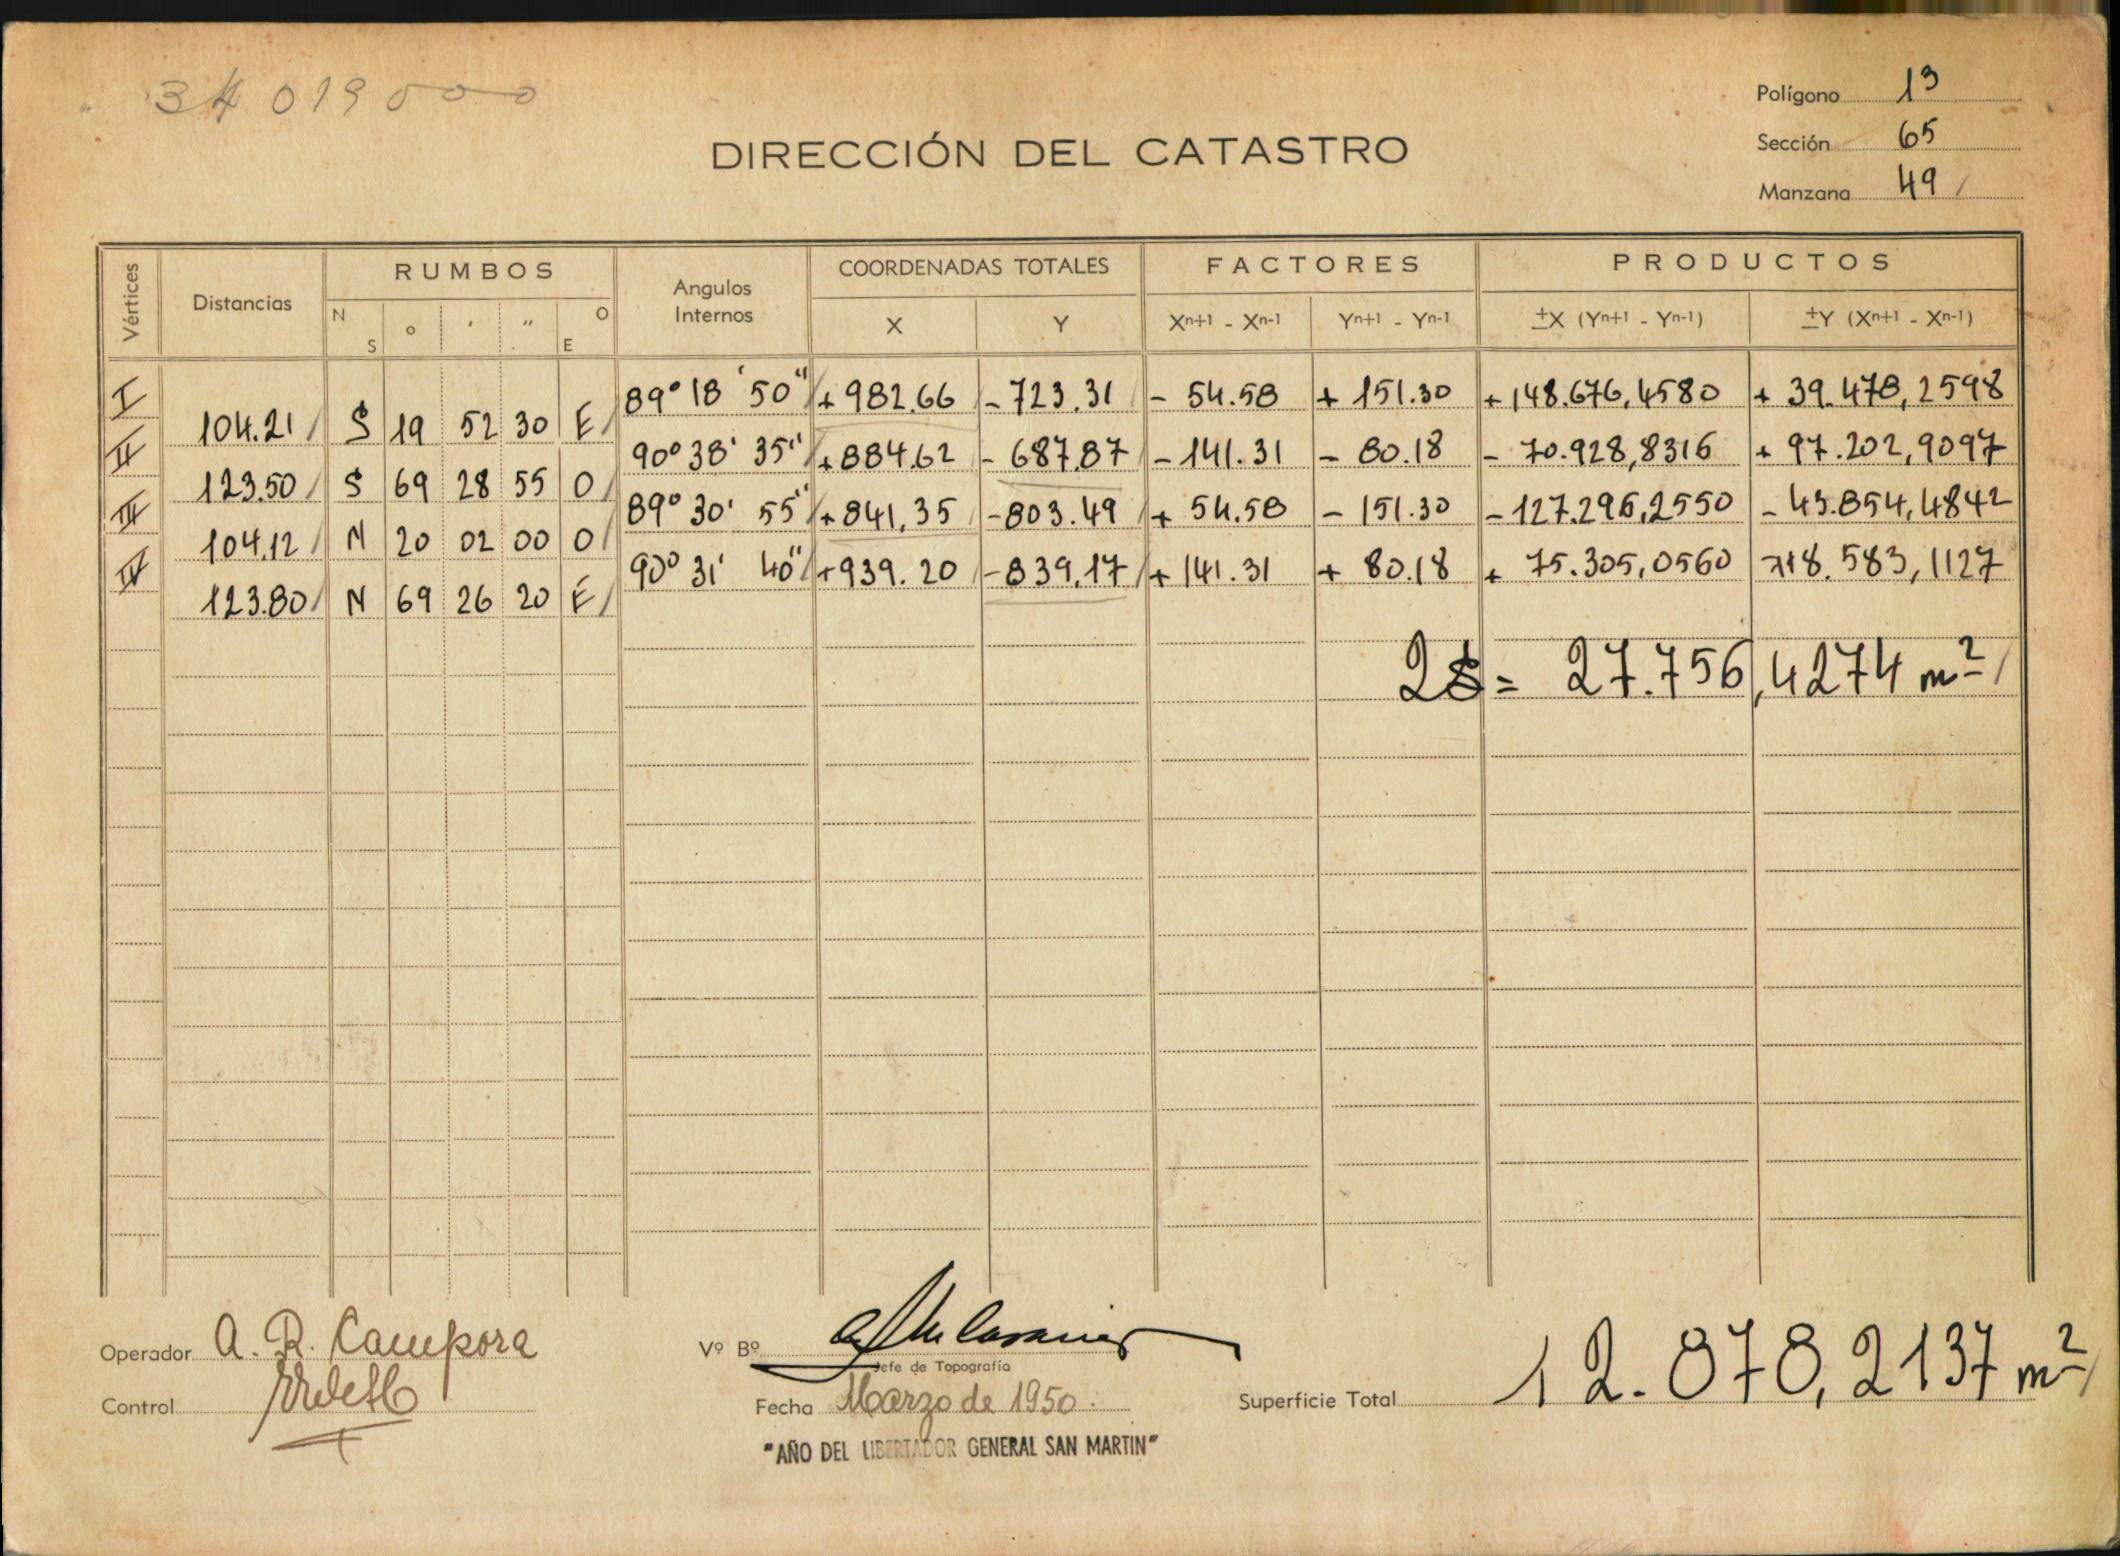 34 019000
Polígono 13
Sección 65
Manzana 49
DIRECCIÓN DEL CATASTRO
Vértices Distancias RUMBOS Angulos Internos COORDENADAS TOTALES FACTORES PRODUCTOS
N S o ' " O E X Y Xn+1 - Xn-1 Yn+1 - Yn-1 ±X (Yn+1 - Yn-1) ±Y (Xn+1 - Xn-1)
I 89° 18' 50" + 982.66 - 723.31 - 54.58 + 151.30 + 148.676,4580 + 39.478,2598
104.21 S 19 52 30 E
II 90° 38' 35" + 884.62 - 687.87 - 141.31 - 80.18 - 70.928,8316 + 97.202,9097
123.50 S 69 28 55 O
III 89° 30' 55" + 841,35 - 803.49 + 54.58 - 151.30 - 127.296,2550 - 43.854,4842
104,12 N 20 02 00 O
IV 90° 31' 40" + 939.20 - 839,17 + 141.31 + 80.18 + 75.305,0560 - 118.583,1127
123.80 N 69 26 20 E
2S = 27.756,4274 m²
Operador A. R. Campora
Control
Vº Bº
Jefe de Topografía
Fecha Marzo de 1950.
"AÑO DEL LIBERTADOR GENERAL SAN MARTIN"
Superficie Total 12.878,2137 m²